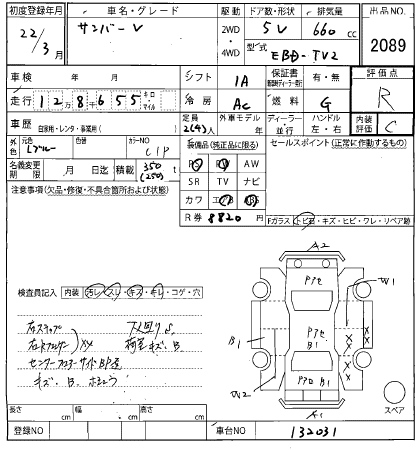 初度登録年月 車名・グレード 駆動 ドア数・形状 排気量 出品NO.
22/3月 サンバーV 2WD 4WD 5V 660cc 2089
型式 EBD-TV2
車検 年 月 シフト 1A 保証書 有・無 評価点
走行 12万8千655 キロ マイル 冷房 AC 燃料 G R
車歴 自家用・レンタ・事業用( ) 定員 2(4)名 外車モデル 年 ディーラー 並行 ハンドル 左・右 内装評価 C
外色 元色 Lブルー 色替 カラーNO C1P 装備品(純正品に限る) セールスポイント(正常に作動するもの)
名義変更期限 月 日迄 積載 350(250) PS PW AW
SR TV ナビ
注意事項(欠品・修復・不具合箇所および状態) カワ
R券 8820
Fガラス(トビ石・キズ・ヒビ・ワレ・リペア跡)
A2
検査員記入 内装(汚レ・スレ・キズ・キレ・コゲ・穴)
Pアセ W1
右ステップ 下廻りS
右リヤフェンダー XX 荷室キズ、B
Pアセ B1
B1
キズ、B
W2 A1
スペア
長さ cm 幅 cm 高さ cm
登録NO 車台NO 132031